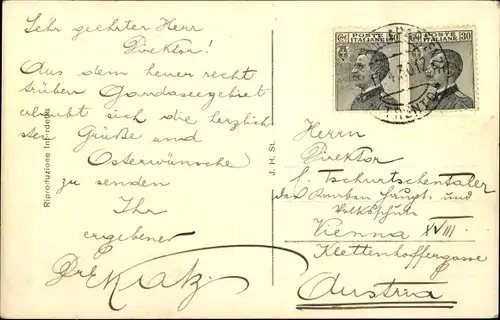 Sehr geehrter Herr
Direktor!
Aus dem heuer recht
trüben Gardaseegebiet
erlaubt sich die herzlich-
sten Grüße und
Osterwünsche
zu senden
Ihr
ergebener
Dr E Katz
Riproduzione Interdetta
J. H. St.
POSTE ITALIANE 30
POSTE ITALIANE 30
TRENTO
Herrn
Direktor
f. Tschurtschentaler
der Knaben Haupt- und
Volksschule
Vienna XVIII.
Klettenhoffergasse
Austria